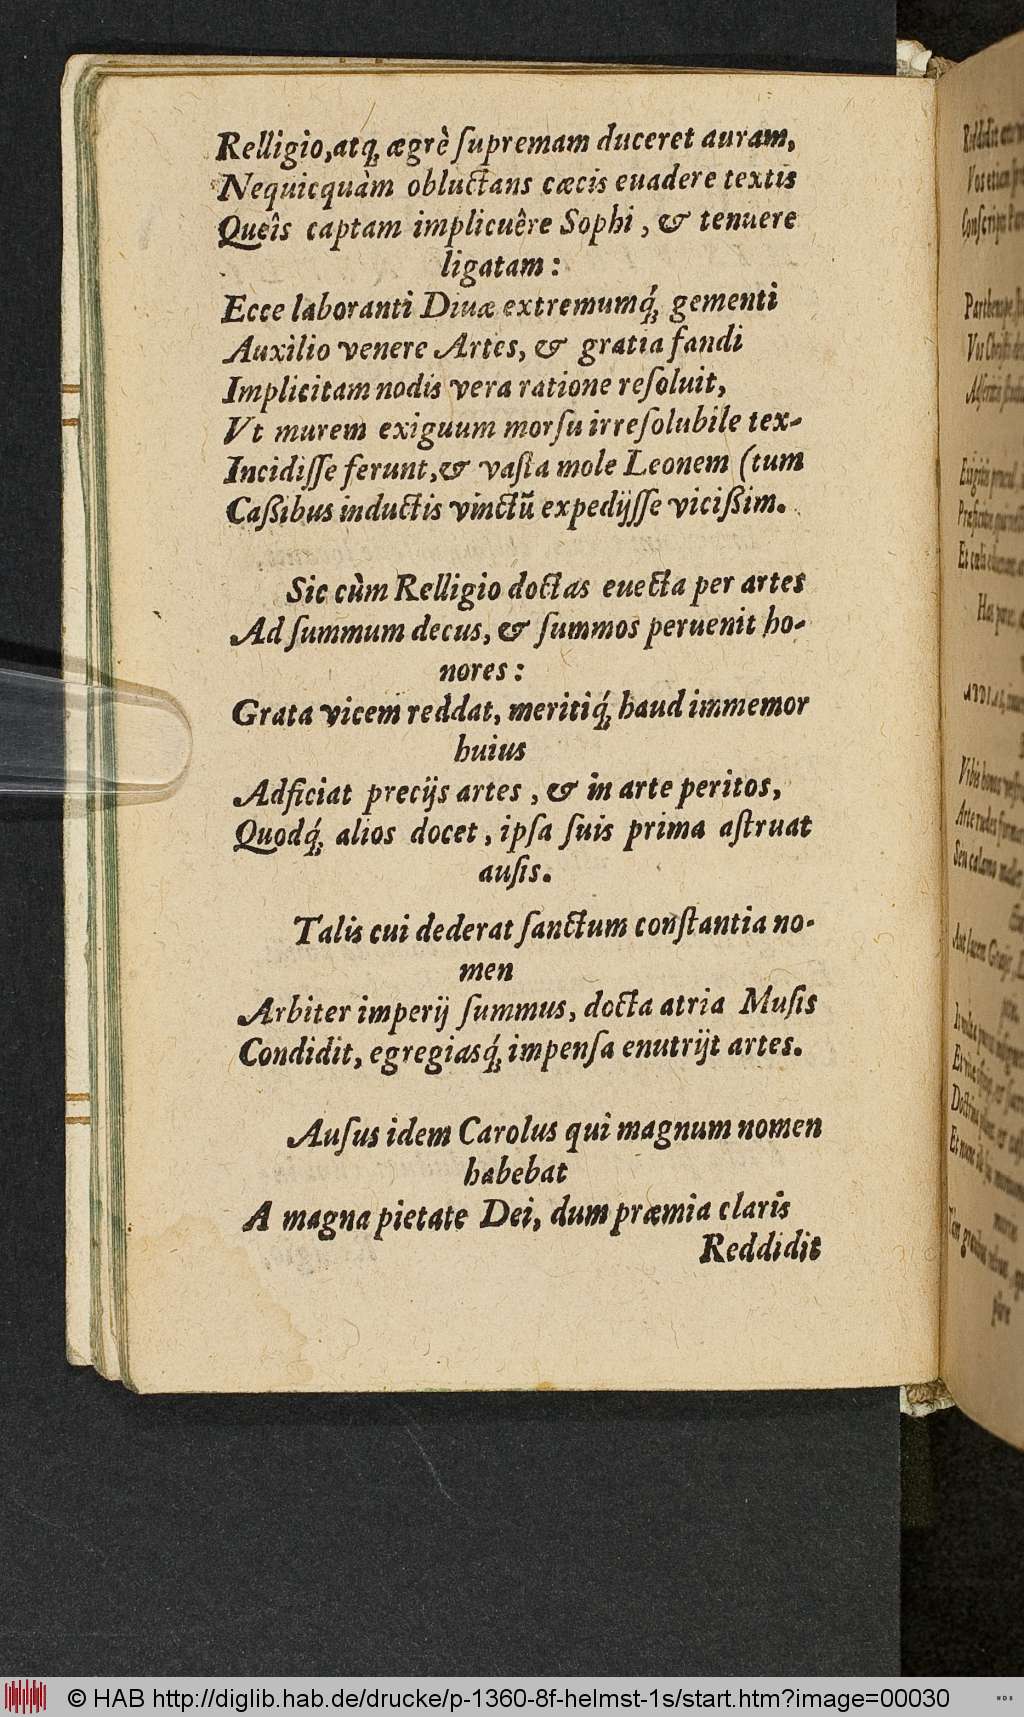 Relligio, atq́; ægrè ſupremam duceret auram,
Nequicquàm obluctans cæcis euadere textis
Queîs captam implicuêre Sophi, & tenuere
ligatam:
Ecce laboranti Diuæ extremumq́; gementi
Auxilio venere Artes, & gratia fandi
Implicitam nodis vera ratione reſoluit,
Vt murem exiguum morſu irreſolubile tex-
Incidiſſe ferunt, & vaſta mole Leonem (tum
Caßibus inductis vinctū expedijſſe vicißim.
Sic cùm Relligio doctas euecta per artes
Ad ſummum decus, & ſummos peruenit ho-
nores:
Grata vicem reddat, meritiq́; haud immemor
huius
Adficiat precijs artes, & in arte peritos,
Quodq́; alios docet, ipſa ſuis prima aſtruat
auſis.
Talis cui dederat ſanctum conſtantia no-
men
Arbiter imperij ſummus, docta atria Muſis
Condidit, egregiasq́; impenſa enutrijt artes.
Auſus idem Carolus qui magnum nomen
habebat
A magna pietate Dei, dum præmia claris
Reddidit
© HAB http://diglib.hab.de/drucke/p-1360-8f-helmst-1s/start.htm?image=00030